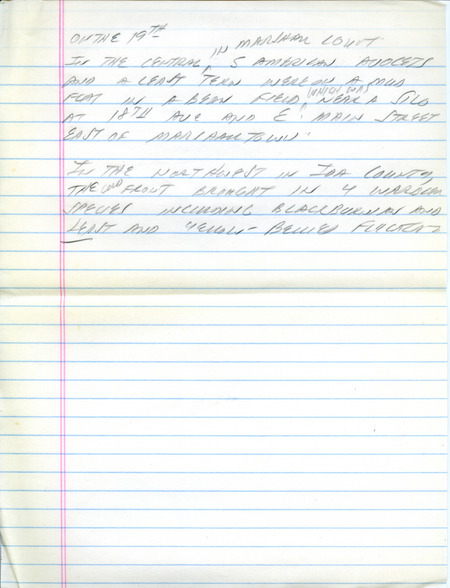 ON THE 19TH
IN THE CENTRAL, IN MARSHALL COUNTY 5 AMERICAN AVOCETS
AND A LEAST TERN WERE ON A MUD
FLAT IN A BEEN FIELD, WHICH WAS NEAR A SILO
AT 18TH AVE AND E. MAIN STREET
EAST OF MARSHALLTOWN.
IN THE NORTHWEST IN IDA COUNTY,
THE FRONT BROUGHT IN 4 WARBLER
SPECIES INCLUDING BLACKBURNIAN AND
LEAST AND YELLOW-BELLIED FLYCATCH